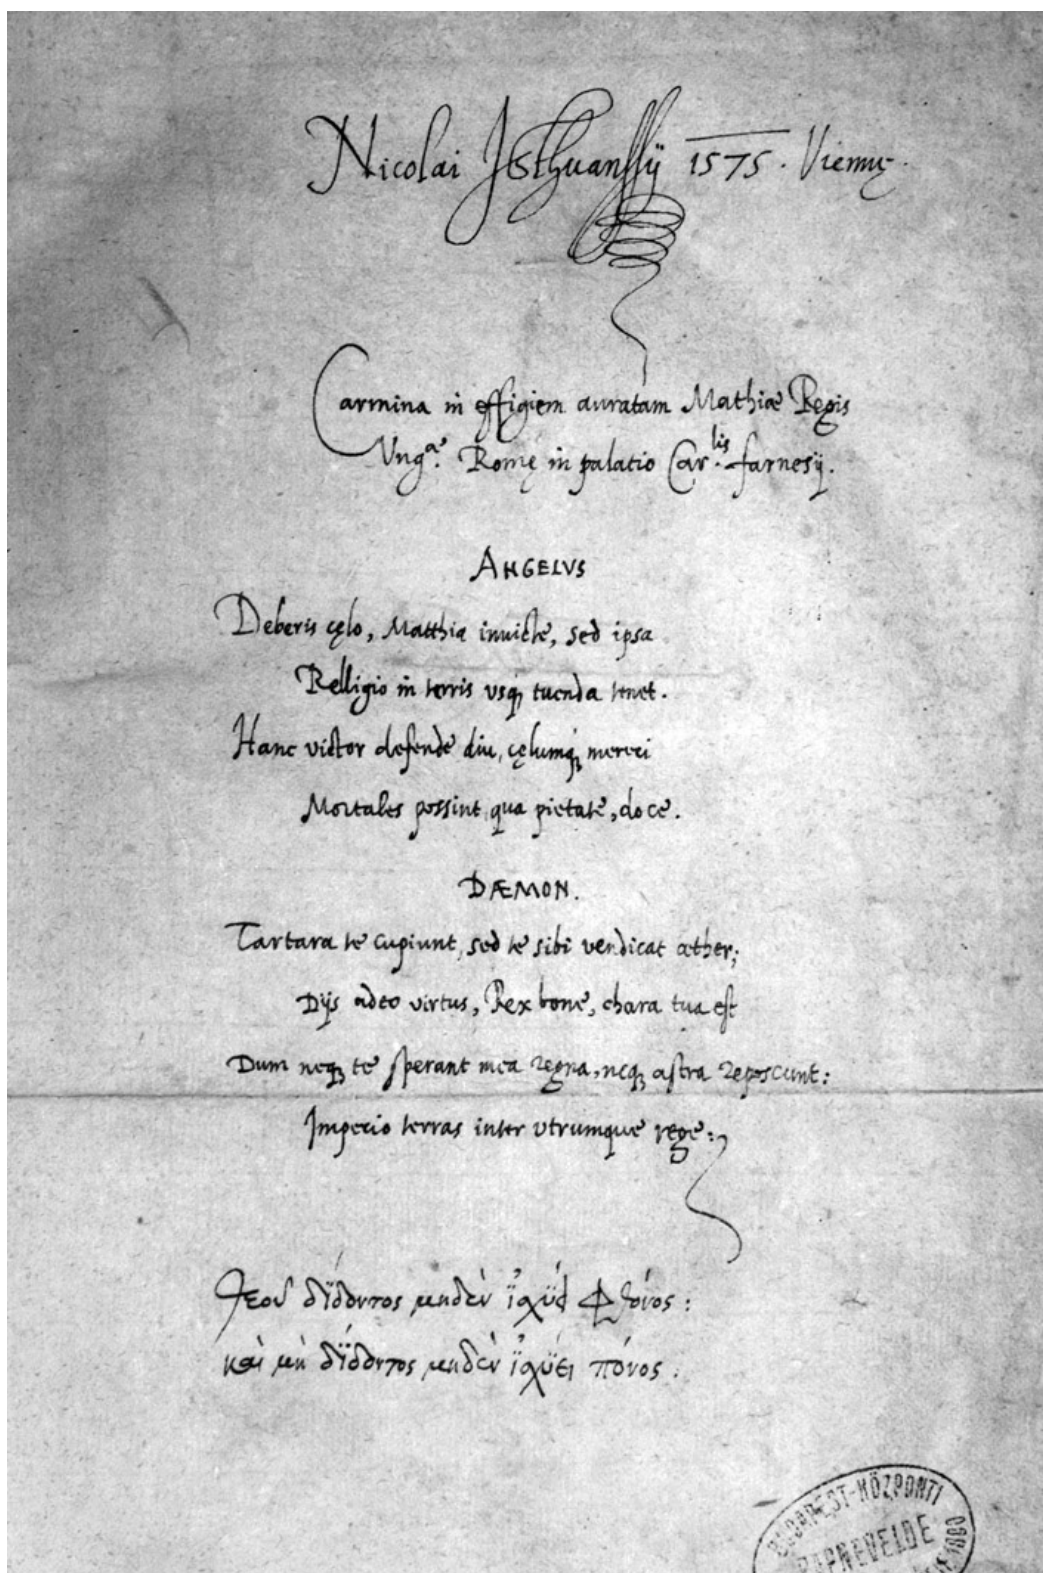 Nicolai Isthuanffÿ 1575. Viennę.
Carmina in effigiem auratam Mathiæ Regis
Vngaᵉ. Romę in palatio Car.ˡⁱˢ farnesÿ.
ANGELVS
Deberis cęlo, Matthia inuicte, sed ipsa
Relligio in terris vsq; tuenda tenet.
Hanc victor defende diu, cęlumq; mereri
Mortales possint, qua pietate, doce.
DÆMON.
Tartara te cupiunt, sed te sibi vendicat æther;
Dijs adeo virtus, Rex bone, chara tua est
Dum neq; te sperant mea regna, neq; astra reposcunt:
Imperio terras inter vtrumque rege:
Θεοῦ διδόντος μηδὲν ἰχύει Φθόνος:
καὶ μὴ διδόντος μηδὲν ἰχύει πόνος:
BUDAPEST-KÖZPONTI
PAPNEVELDE